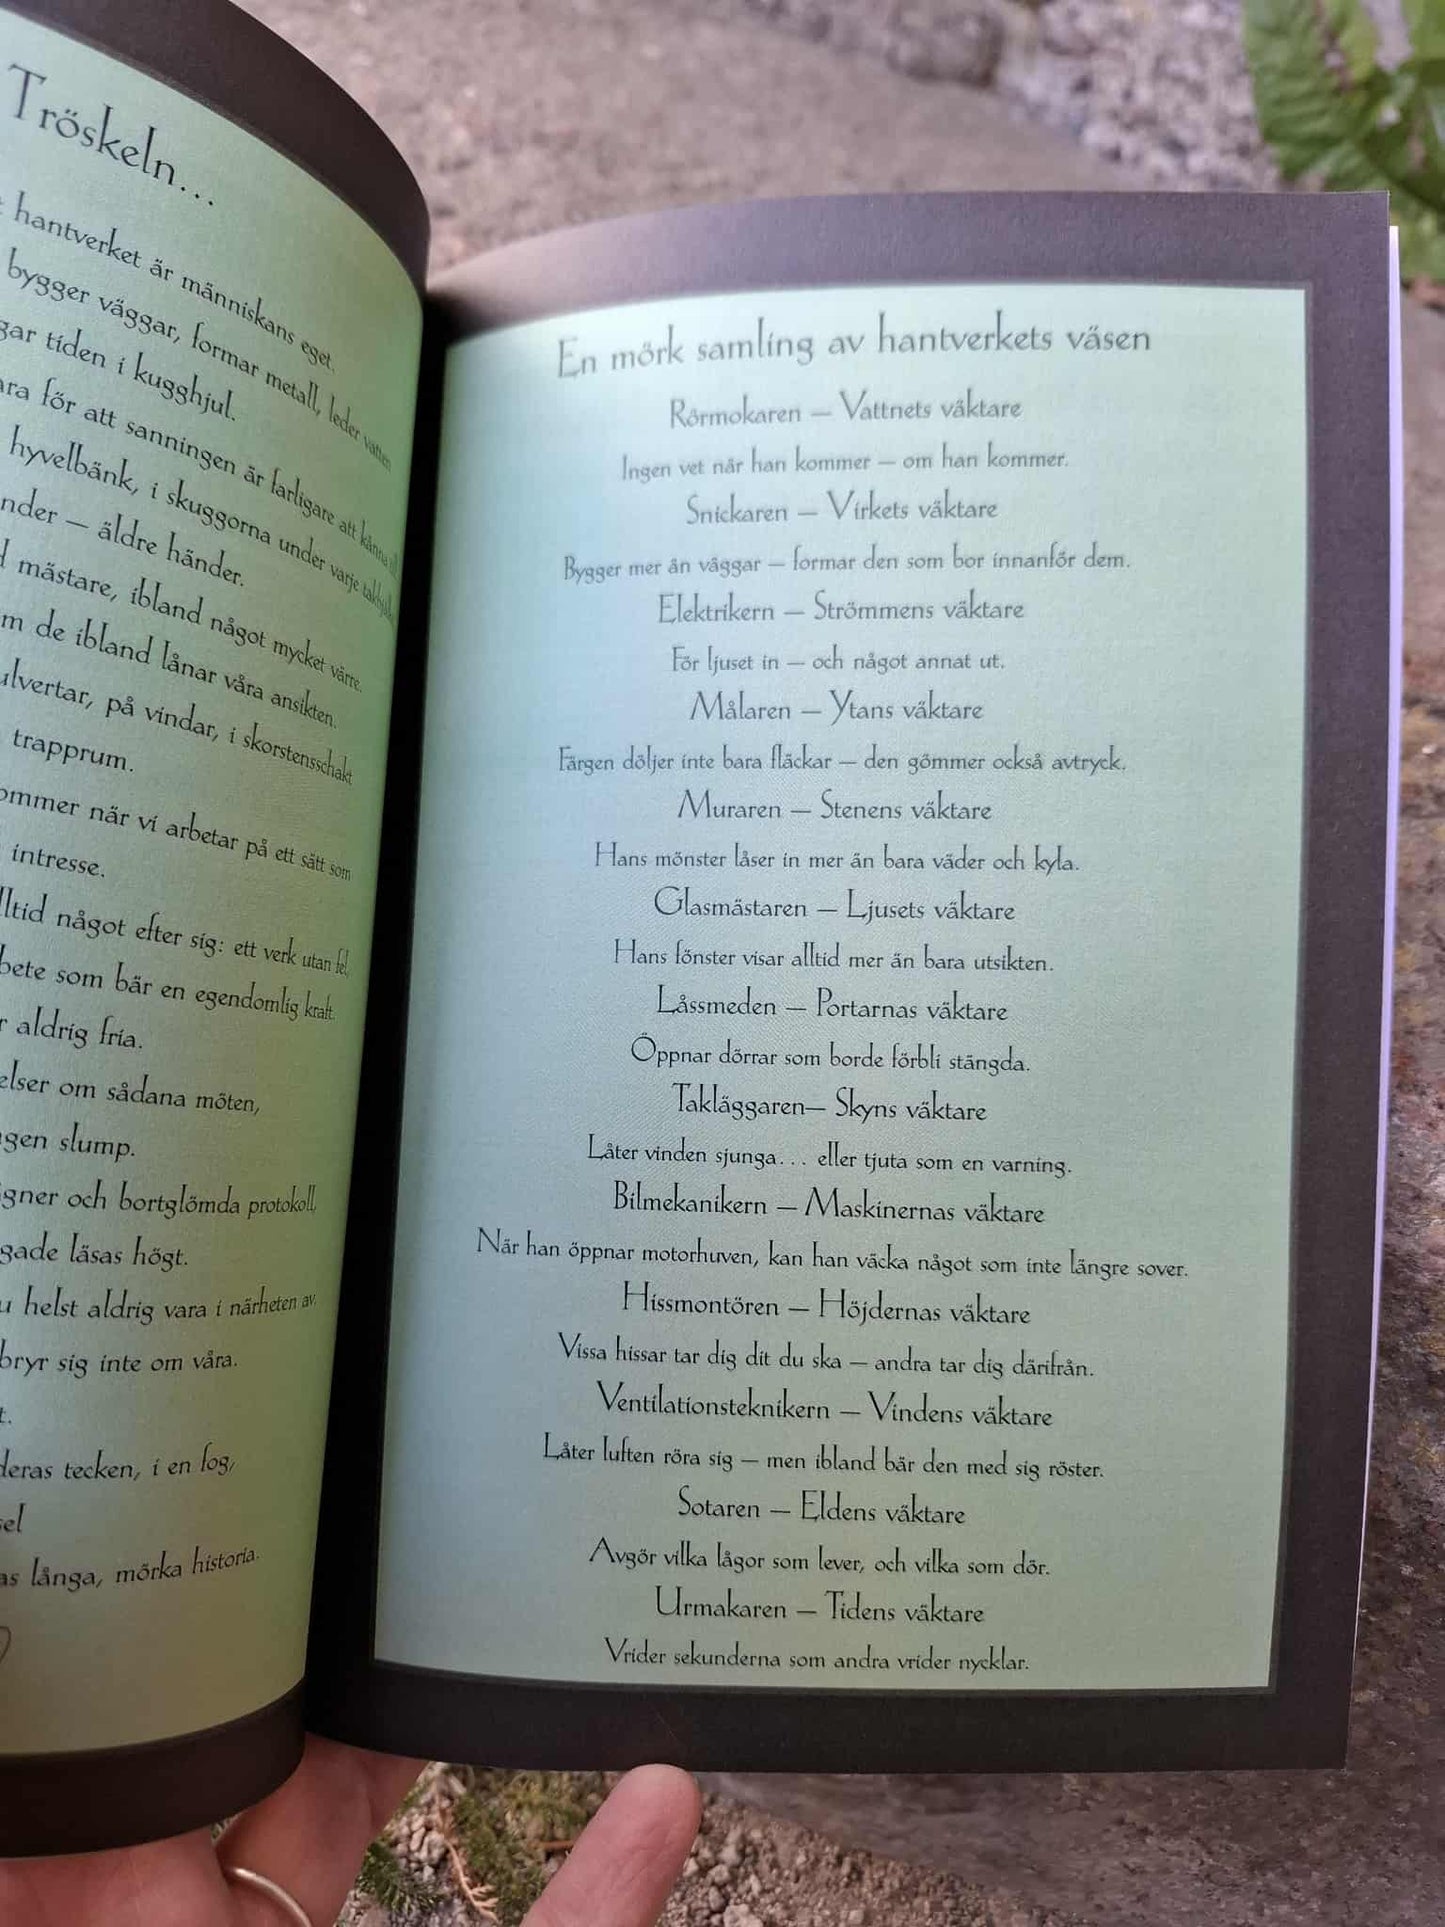 Tröskeln...
hantverket är människans eget.
bygger väggar, formar metall, leder vatten
tiden i kugghjul.
för att sanningen är farligare att känna
hyvelbänk, i skuggorna under varje
– äldre händer.
mästare, ibland något mycket värre.
de ibland lånar våra ansikten.
på vindar, i skorstensschakt
trapprum.
när vi arbetar på ett sätt som
intresse.
något efter sig: ett verk utan fel,
som bär en egendomlig kraft.
aldrig fria.
om sådana möten,
slump.
och bortglömda protokoll,
läsas högt.
helst aldrig vara i närheten av.
bryr sig inte om våra.
tecken, i en fog,
långa, mörka historia.
En mörk samling av hantverkets väsen
Rörmokaren – Vattnets väktare
Ingen vet när han kommer – om han kommer.
Snickaren – Virkets väktare
Bygger mer än väggar – formar den som bor innanför dem.
Elektrikern – Strömmens väktare
För ljuset in – och något annat ut.
Målaren – Ytans väktare
Färgen döljer inte bara fläckar – den gömmer också avtryck.
Muraren – Stenens väktare
Hans mönster låser in mer än bara väder och kyla.
Glasmästaren – Ljusets väktare
Hans fönster visar alltid mer än bara utsikten.
Låssmeden – Portarnas väktare
Öppnar dörrar som borde förbli stängda.
Takläggaren– Skyns väktare
Låter vinden sjunga... eller tjuta som en varning.
Bilmekanikern – Maskinernas väktare
När han öppnar motorhuven, kan han väcka något som inte längre sover.
Hissmontören – Höjdernas väktare
Vissa hissar tar dig dit du ska – andra tar dig därifrån.
Ventilationsteknikern – Vindens väktare
Låter luften röra sig – men ibland bär den med sig röster.
Sotaren – Eldens väktare
Avgör vilka lågor som lever, och vilka som dör.
Urmakaren – Tidens väktare
Vrider sekunderna som andra vrider nycklar.